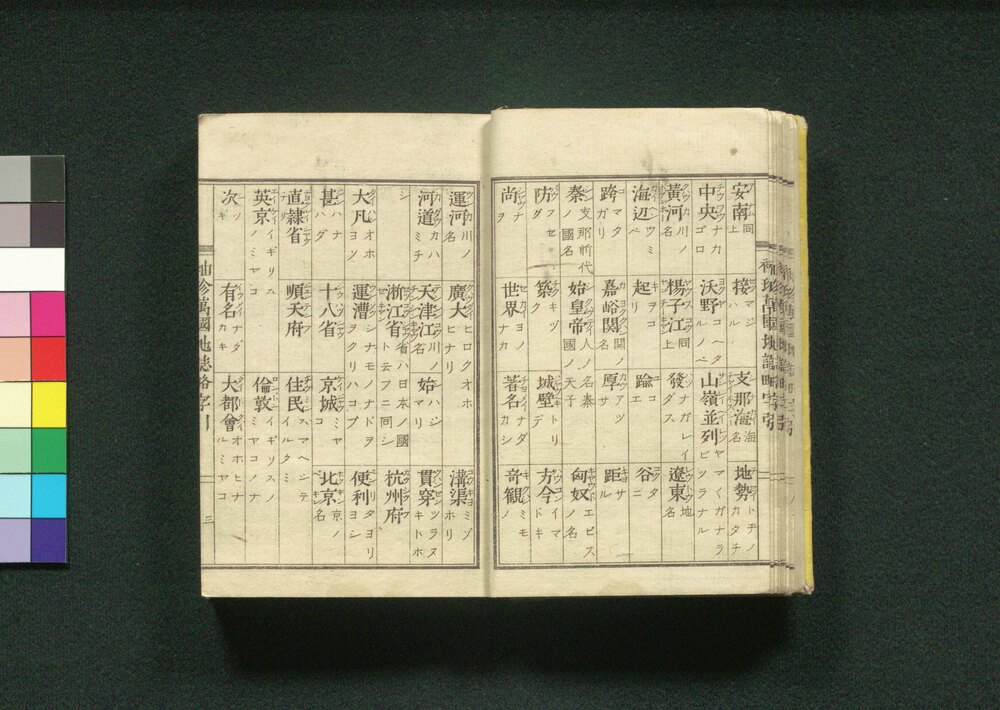 安南 同上 接 マジハル 支那海 海ノ名 地勢 トチノカタチ
中央 ナカゴロ 沃野 コヘタルノベ 山嶺並列 ヤマミガナラビツラナル
黃河 川ノ名 楊子江 同上 發 ダス 遼東 地名
海辺 ウミベ 起 ヲコリ 踰 コエ 谷 タニ
跨 マタガリ 嘉峪關 関ノ名 厚 アツサ 距 サル
秦 支那前代ノ國名 始皇帝 秦國ノ天子 匈奴 エビスノ名
防 フセグ 築 キヅキ 城壁 方今 イマ
尚 ナヲ 世界 著名 ナダカシ 奇観
運河 川ノ名 廣大 ヒロクオホヒナリ 溝渠 ミゾホリ
河道 カハミチ 天津江 川ノ名 始 ハジマリ 貫穿 ツラヌキトホシ
浙江省 省ハ日本ノ國ト云フニ同シ 杭州府
大凡 オホヨソ 運漕 シナモノナドヲヲクリハコブ 便利 タヨリヨシ
甚 ハナハダ 十八省 京城 ミヤコ 北京 京ノ名
直隷省 順天府 住民 スマヘシテイルタミ
英京 イギリスノミヤコ 倫敦 イギリスノミヤコノナ
次 ツギ 有名 ナダカキ 大都會 オホヒナルミヤコ
袖珍萬國地誌略字引 三